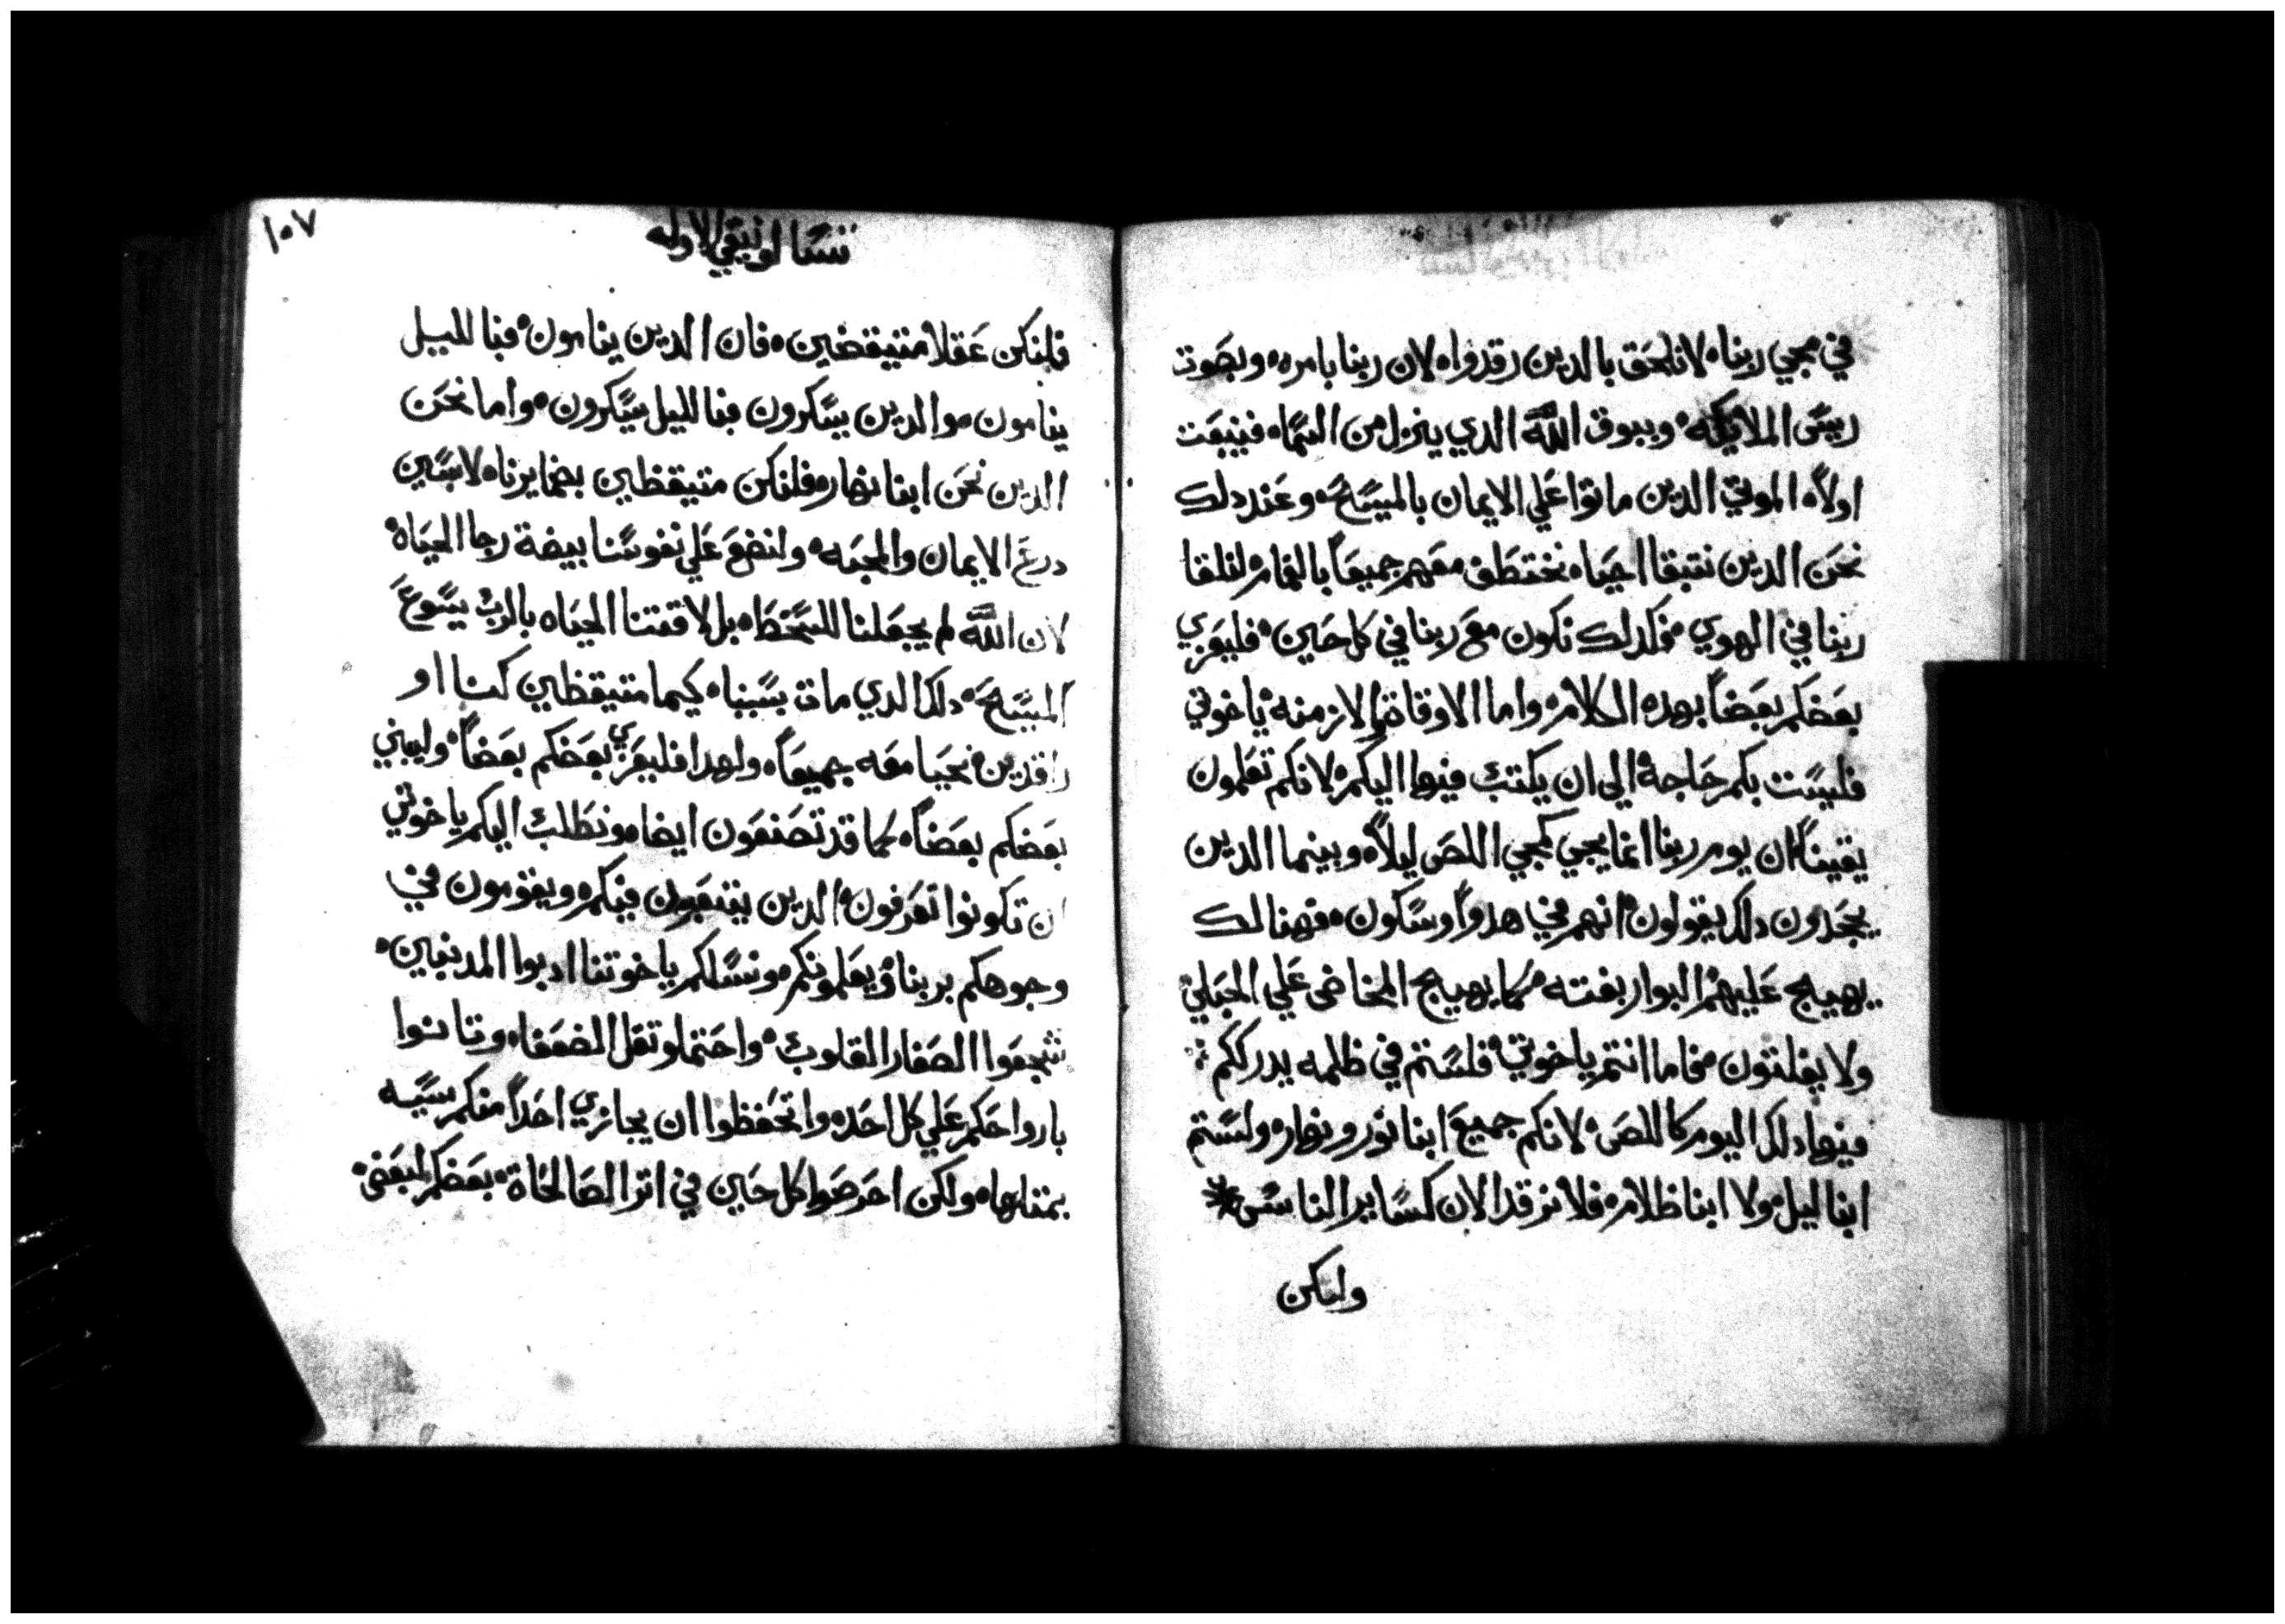 في مجي ربنا لا نلحق بالدين رقدوا لان ربنا بامره وبصوت
ريس الملايكه وببوق الله الدي ينزل من السما فينبعت
اولاً الموتي الدين ماتوا علي الايمان بالمسيح وعند دلك
نحن الدين نتبقا احيا نختطف معهم جميعاً بالغمام لنلقا
ربنا في الهوي فكدلك نكون مع ربنا في كل حين فليعزي
بعضكم بعضاً بهده الكلام واما الاوقاة والازمنه ياخوتي
فليست بكم حاجة الي ان يكتب فيها اليكم لانكم تعلمون
يقيناً ان يوم ربنا انما يجي كمجي اللص ليلاً وبينما الدين
يجحدون دلك يقولون انهم في هدواً وسكون فهنالك
يهيج عليهم البوار بغته كما يهيج المخاض علي الحبلي
ولا يفلتون فاما انتم ياخوتي فلستم في ظلمه يدرككم
فيها دلك اليوم كاللص لانكم جميع ابنا نور ونهار ولستم
ابنا ليل ولا ابنا ظلام فلا نرقد الان كساير الناس
ولنكن
١٠٧
تسالونيقي الاوله
فلنكن عقلا متيقضين فان الدين ينامون فبالليل
ينامون والدين يسكرون فبالليل يسكرون واما نحن
الدين نحن ابنا نهار فلنكن متيقظين بضمايرنا لابسين
درع الايمان والمحبه ولنضع علي نفوسنا بيضة رجا الحياة
لان الله لم يجعلنا للسخط بل لاقتنا الحياه بالرب يسوع
المسيح دلك الدي مات بسببنا كيما متيقظين كنا او
راقدين نحيا معه جميعاً ولهدا فليعزي بعضكم بعضاً وليبني
بعضكم بعضاً كما قد تصنعون ايضا ونطلب اليكم ياخوتي
ان تكونوا تعرفون الدين يتعبون فيكم ويقومون في
وجوهكم بربنا ويعلمونكم ونسالكم ياخوتنا ادبوا المدنبين
شجعوا الصغار القلوب واحتملو تقل الضعفا وتانوا
بارواحكم علي كل احد واتحفظوا ان يجازي احداً منكم سييه
بمتلها ولكن احرصوا كل حين في اتر الصالحاة بعضكم لبعض